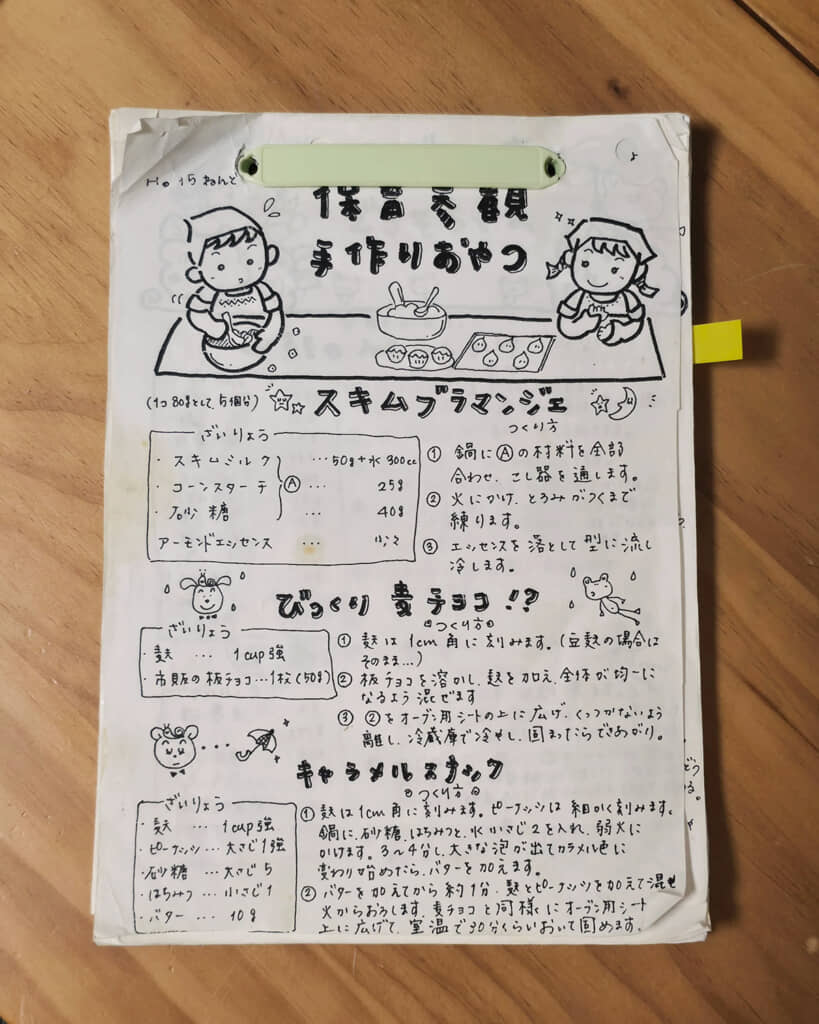 H。15ねんど
保育参観
手作りおやつ
(1コ80gとして、5個分)
スキムブラマンジェ
ざいりょう
・スキムミルク …50g+水300cc
・コーンスターチ Ⓐ … 25g
・砂糖 … 40g
アーモンドエッセンス … 少々
つくり方
① 鍋にⒶの材料を全部
合わせ、こし器を通します。
② 火にかけ、とろみがつくまで
練ります。
③ エッセンスを落として型に流し
冷します。
びっくり麦チョコ!?
ざいりょう
・麩 … 1cup強
・市販の板チョコ…1枚(50g)
つくり方
① 麩は1cm角に刻みます。(豆麩の場合は
そのまま…)
② 板チョコを溶かし、麩を加え、全体が均一に
なるよう混ぜます
③ ②をオーブン用シートの上に広げ、くっつかないよう
離し、冷蔵庫で冷やし、固まったらできあがり。
キャラメルスナック
ざいりょう
・麩 … 1cup強
・ピーナッツ … 大さじ1強
・砂糖 … 大さじ5
・はちみつ … 小さじ1
・バター … 10g
つくり方
① 麩は1cm角に刻みます。ピーナッツは細かく刻みます。
鍋に、砂糖、はちみつと、水小さじ2を入れ、弱火に
かけます。3〜4分し、大きな泡が出てカラメル色に
変わり始めたら、バターを加えます。
② バターを加えてから約1分、麩とピーナッツを加えて混ぜ
火からおろします。麦チョコと同様にオーブン用シート
上に広げて、室温で30分くらいおいて固めます。